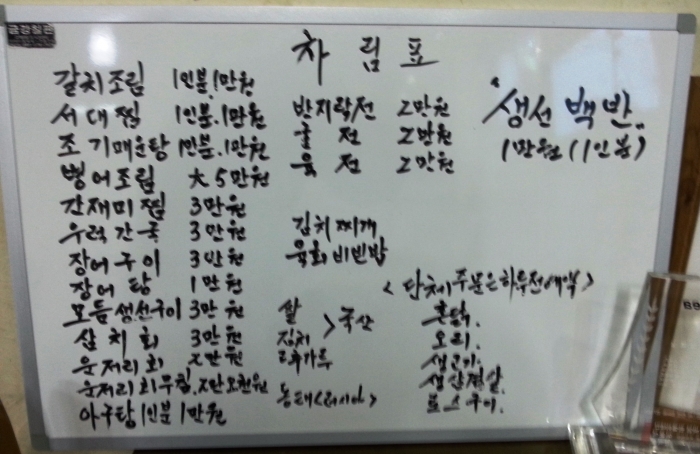 금강칠판
차림표
갈치조림 1인분.1만원
서대찜 1인분.1만원
조기매운탕 1인분.1만원
병어조림 大 5만원
간재미찜 3만원
우럭간국 3만원
장어구이 3만원
장어탕 1만원
모듬생선구이 3만원
삼치회 3만원
운저리회 2만원
운저리회무침.2만오천원
아구탕 1인분 1만원
반지락전 2만원
굴전 2만원
육전 2만원
김치찌개
육회비빈밥
쌀
김치 > 국산
고추가루
동태<러시아>
"생선 백반"
1만원 (1인분)
<단체주문은하루전예약>
촌닭.
오리.
생고기.
생삼겹살.
로스구이.